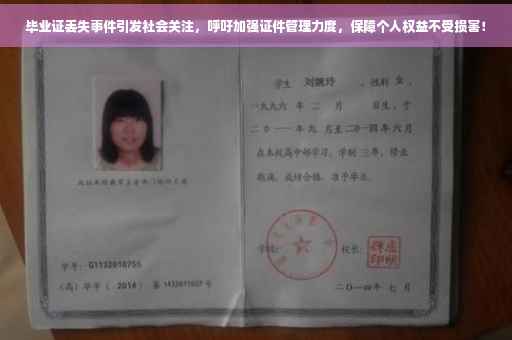 毕业证丢失事件引发社会关注，呼吁加强证件管理力度，保障个人权益不受损害！
学生 刘婉玲 ，性别 女 ，
一九九六 年 二 月 日生，于
二0一一年 九 月至二0一四年 六 月
在本校高中部学习，学制 三年，修业
期满，成绩合格，准予毕业。
学校： 校长：
二〇一四年 七 月
学号：G1132010755
（高）毕字（ 2014 ）第 1432011027 号